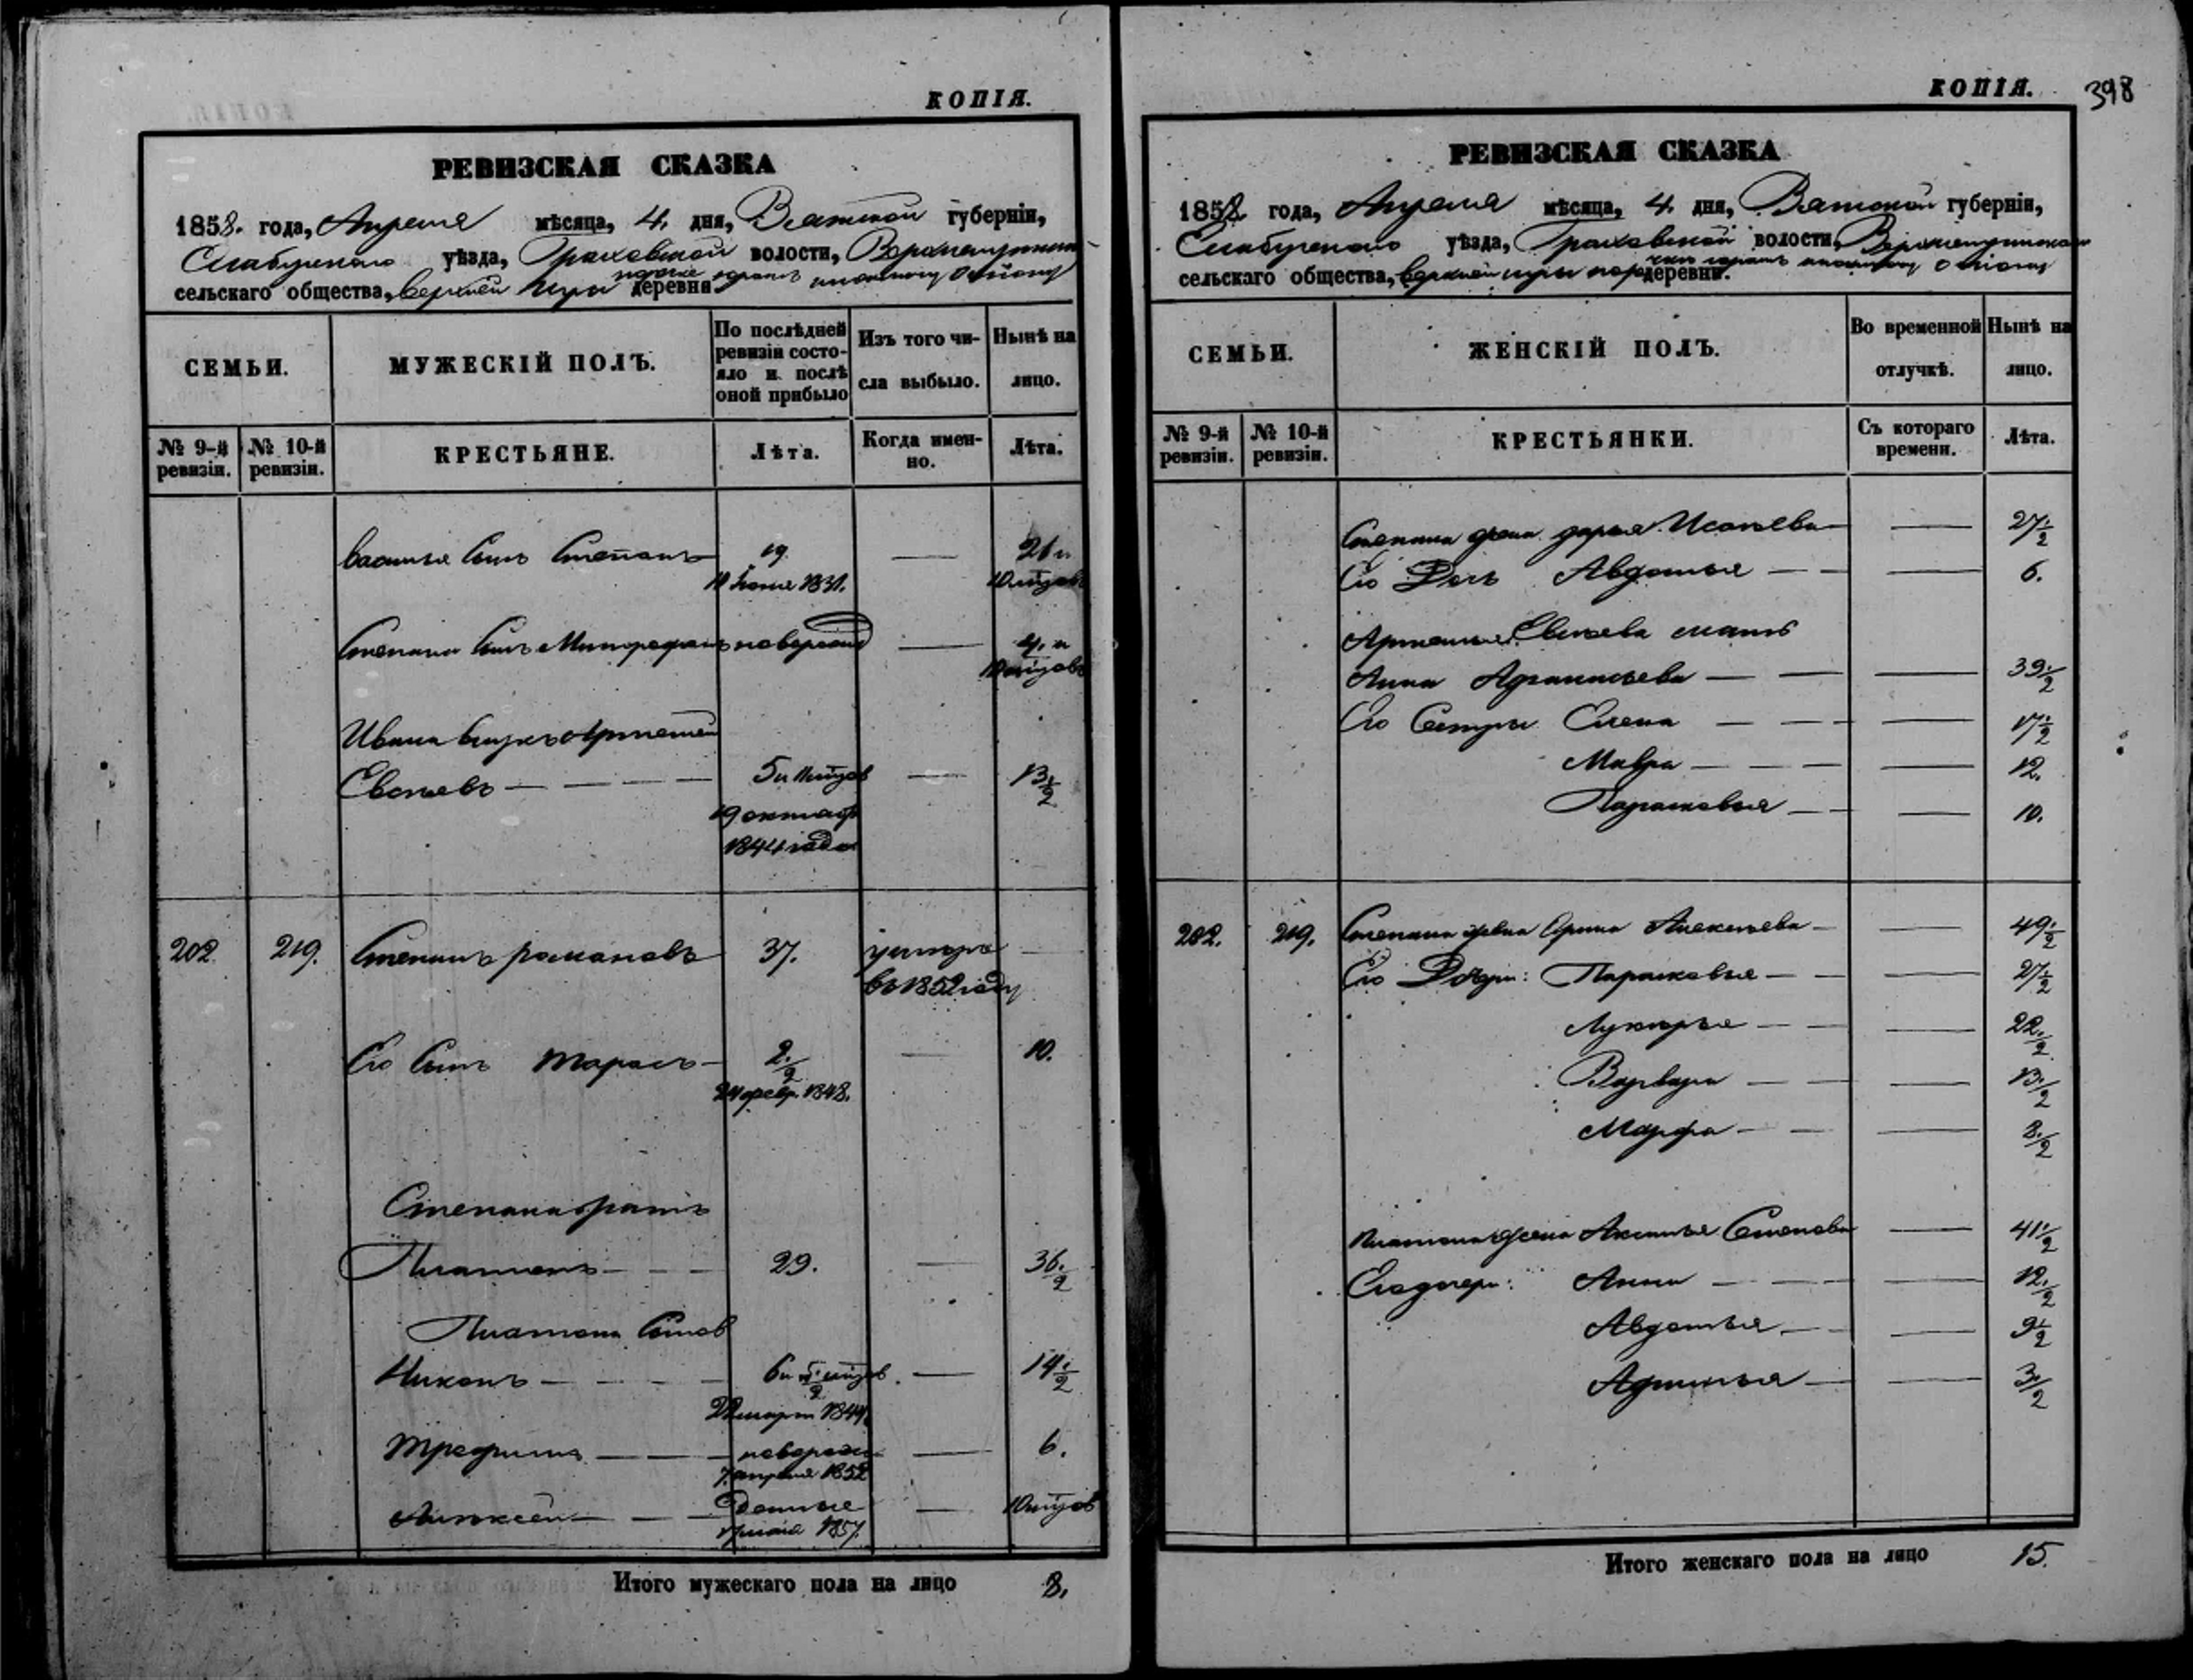 КОПІЯ.
РЕВИЗСКАЯ СКАЗКА
1858. года, Апреля мѣсяца, 4. дня, Вятской губерніи,
Елабугскаго уѣзда, Граховской волости,
сельскаго общества, Верхней Игры деревни
СЕМЬИ.
МУЖЕСКІЙ ПОЛЪ.
По послѣдней ревизіи состояло и послѣ оной прибыло
Изъ того числа выбыло.
Нынѣ на лицо.
№ 9-й ревизіи.
№ 10-й ревизіи.
КРЕСТЬЯНЕ.
Лѣта.
Когда именно.
Лѣта.
Василья сынъ Степанъ 19. — 26 и
10 мѣцовъ
Степана сынъ Митрофанъ новорожд — 4. и
10 мѣцовъ
Ивана внукъ Артемей
Евсѣевъ — — — 5 и 11 мѣцов — 13 1/2
19 октяб
1844 года
202. 219. Степанъ романовъ 37. умѣръ —
въ 1852 году
Его сынъ Тарасъ — 2. 1/2 — 10.
24 февр. 1848.
Степана братъ
Платонъ — — — 29. — 36. 1/2
Платона сынов
Никонъ — — — — — 14 1/2
22 март 1844
Трефилъ — — — новорож — 6.
7. апреля 1852
Алексей — — — — 10 мѣцов
1857.
Итого мужескаго пола на лицо 8.
КОПІЯ. 398
РЕВИЗСКАЯ СКАЗКА
1858 года, Апреля мѣсяца, 4. дня, Вятской губерніи,
Елабугскаго уѣзда, Граховской волости,
сельскаго общества, Верхней Игры деревни.
СЕМЬИ.
ЖЕНСКІЙ ПОЛЪ.
Во временной отлучкѣ.
Нынѣ на лицо.
№ 9-й ревизіи.
№ 10-й ревизіи.
КРЕСТЬЯНКИ.
Съ котораго времени.
Лѣта.
Степана жена дарья Исаѣева — — 27 1/2
Его Дочь Авдотья — — — 6.
Артемья Евсѣева мать
Анна Афанасьева — — — 39 1/2
Его Сестры Елена — — — — 17 1/2
Мавра — — — — 12.
Парасковья — — — 10.
202. 219. Степана жена Орина Алексѣева — — 49 1/2
Его Дочери: Парасковья — — — 27 1/2
Лукерья — — — 22. 1/2
Варвара — — — 13. 1/2
Марфа — — — 8. 1/2
Платона жена Аксинья Семенова — 41 1/2
Его дочери: Анна — — — — 12. 1/2
Авдотья — — — 9 1/2
— — 3. 1/2
Итого женскаго пола на лицо 15.